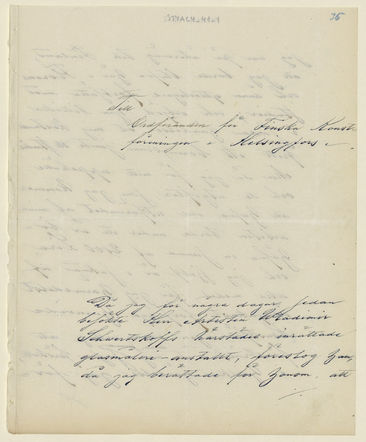 75
Till
Ordföranden för Finska Konst-
föreningen i Helsingfors.
Då jag för några dagar sedan
besökte Herr Artisten Wladimir
Schwertskoffs härstädes inrättade
glasmåleri-anstalt, föreslog han,
då jag berättade för honom, att